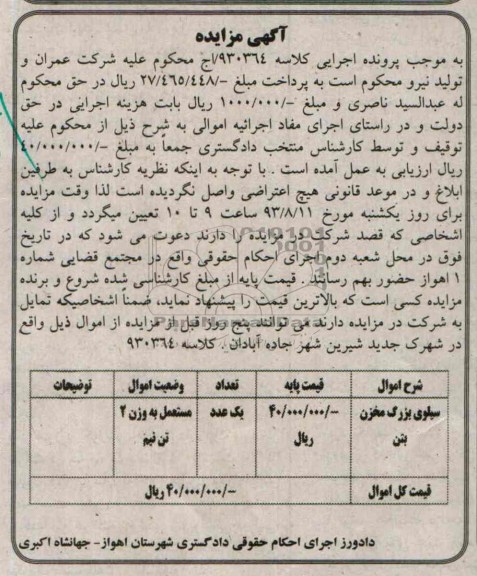 آگهی مزایده
به موجب پرونده اجرایی کلاسه ۹۳۰۳۶۴/اج محکوم علیه شرکت عمران و
تولید نیرو محکوم است به پرداخت مبلغ -/۲۷/۴۶۵/۴۴۸ ریال در حق محکوم
له عبدالسید ناصری و مبلغ -/۱۰۰۰/۰۰۰ ریال بابت هزینه اجرایی در حق
دولت و در راستای اجرای مفاد اجرائیه اموالی به شرح ذیل از محکوم علیه
توقیف و توسط کارشناس منتخب دادگستری جمعاً به مبلغ -/۴۰/۰۰۰/۰۰۰
ریال ارزیابی به عمل آمده است . با توجه به اینکه نظریه کارشناس به طرفین
ابلاغ و در موعد قانونی هیچ اعتراضی واصل نگردیده است لذا وقت مزایده
برای روز یکشنبه مورخ ۹۳/۸/۱۱ ساعت ۹ تا ۱۰ تعیین میگردد و از کلیه
اشخاصی که قصد شرکت در مزایده را دارند دعوت می شود که در تاریخ
فوق در محل شعبه دوم اجرای احکام حقوقی واقع در مجتمع قضایی شماره
۱ اهواز حضور بهم رسانند . قیمت پایه از مبلغ کارشناسی شده شروع و برنده
مزایده کسی است که بالاترین قیمت را پیشنهاد نماید، ضمناً اشخاصیکه تمایل
به شرکت در مزایده دارند می توانند پنج روز قبل از مزایده از اموال ذیل واقع
در شهرک جدید شیرین شهر جاده آبادان . کلاسه ۹۳۰۳۶۴
شرح اموال قیمت پایه تعداد وضعیت اموال توضیحات
سیلوی بزرگ مخزن -/۴۰/۰۰۰/۰۰۰ یک عدد مستعمل به وزن ۲
بتن ریال تن نیم
قیمت کل اموال -/۴۰/۰۰۰/۰۰۰ ریال
دادورز اجرای احکام حقوقی دادگستری شهرستان اهواز- جهانشاه اکبری